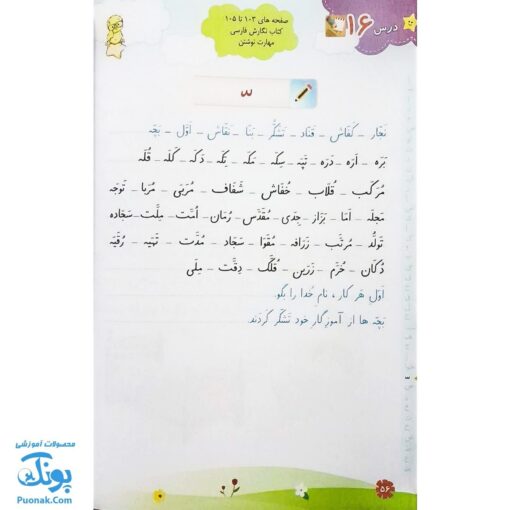 درس ۱۶
صفحه های ۱۰۳ تا ۱۰۵
کتاب نگارش فارسی
مهارت نوشتن
ـّ
نَجّار – کَفّاش – قَنّاد – تَشَکُّر – بَنّا – نَقّاش – اَوَّل – بَچّه
بَرّه – اَرّه – دَرّه – تَپّه – سِکّه – مَکّه – تِکّه – دَکّه – کَلّه – قُلّه
مُرَکَّب – قُلّاب – خُفّاش – شَفّاف – مُرَبّی – مُرَبّا – تَوَجّه
مَجَلّه – اَمّا – بَزّاز – جِدّی – مُقَدَّس – رُمّان – اُمَّت – مِلَّت – سَجّاده
تَوَلُّد – مُرَتَّب – زَرّافه – مُقَوّا – سَجّاد – مُدَّت – تَهیّه – رُقَیّه
دُکّان – خُرَّم – زَرّین – قُلَّک – دِقَّت – مِلّی
اَوَّلِ هَر کار، نامِ خُدا را بِگو.
بَچّه ها از آموزِگارِ خود تَشَکُّر کَردَند.
۵۶
محصولات آموزشی
پونک
Puonak.Com